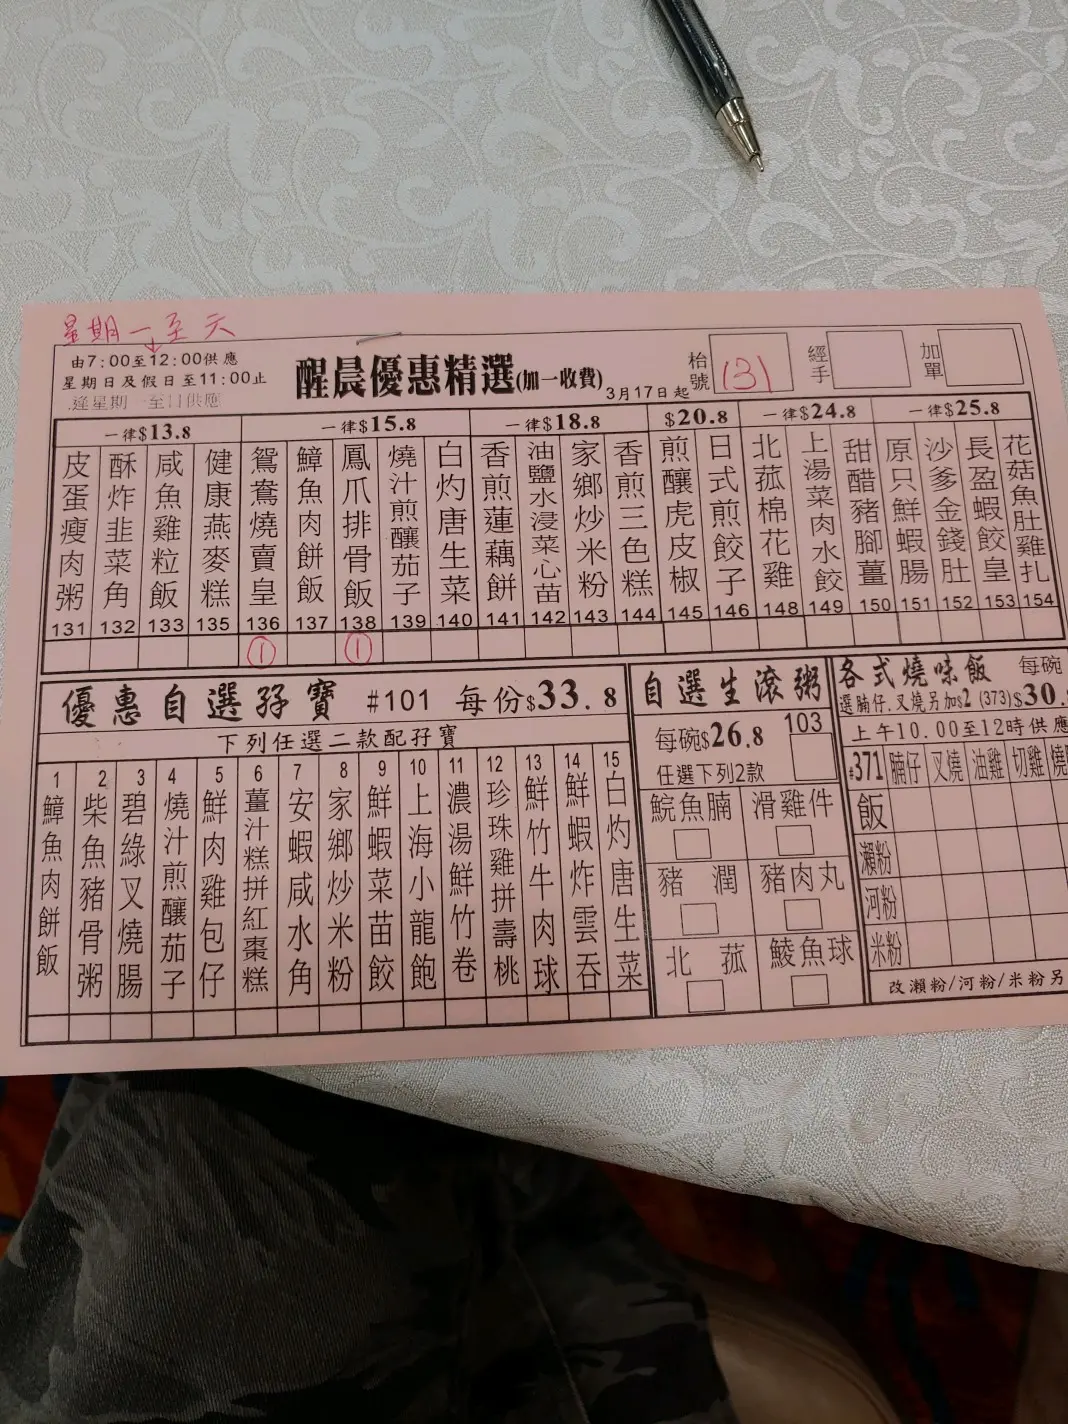 星期一至天
由7:00至12:00供應
星期日及假日至11:00止
逢星期一至日供應
醒晨優惠精選(加一收費)
3月17日起
枱號
131
經手
加單
一律$13.8
一律$15.8
一律$18.8
$20.8
一律$24.8
一律$25.8
皮蛋瘦肉粥 131
酥炸韭菜角 132
咸魚雞粒飯 133
健康燕麥糕 135
鴛鴦燒賣皇 136 1
鱆魚肉餅飯 137
鳳爪排骨飯 138 1
燒汁煎釀茄子 139
白灼唐生菜 140
香煎蓮藕餅 141
油鹽水浸菜心苗 142
家鄉炒米粉 143
香煎三色糕 144
煎釀虎皮椒 145
日式煎餃子 146
北菰棉花雞 148
上湯菜肉水餃 149
甜醋豬腳薑 150
原只鮮蝦腸 151
沙爹金錢肚 152
長盈蝦餃皇 153
花菇魚肚雞扎 154
優惠自選孖寶 #101 每份$33.8
下列任選二款配孖寶
1 鱆魚肉餅飯
2 柴魚豬骨粥
3 碧綠叉燒腸
4 燒汁煎釀茄子
5 鮮肉雞包仔
6 薑汁糕拼紅棗糕
7 安蝦咸水角
8 家鄉炒米粉
9 鮮蝦菜苗餃
10 上海小龍飽
11 濃湯鮮竹卷
12 珍珠雞拼壽桃
13 鮮竹牛肉球
14 鮮蝦炸雲吞
15 白灼唐生菜
自選生滾粥
每碗$26.8 103
任選下列2款
鯇魚腩 滑雞件
豬潤 豬肉丸
北菰 鯪魚球
各式燒味飯 每碗
選腩仔.叉燒另加$2 (373)$30.
上午10.00至12時供應
#371 腩仔 叉燒 油雞 切雞 燒
飯
瀨粉
河粉
米粉
改瀨粉/河粉/米粉另